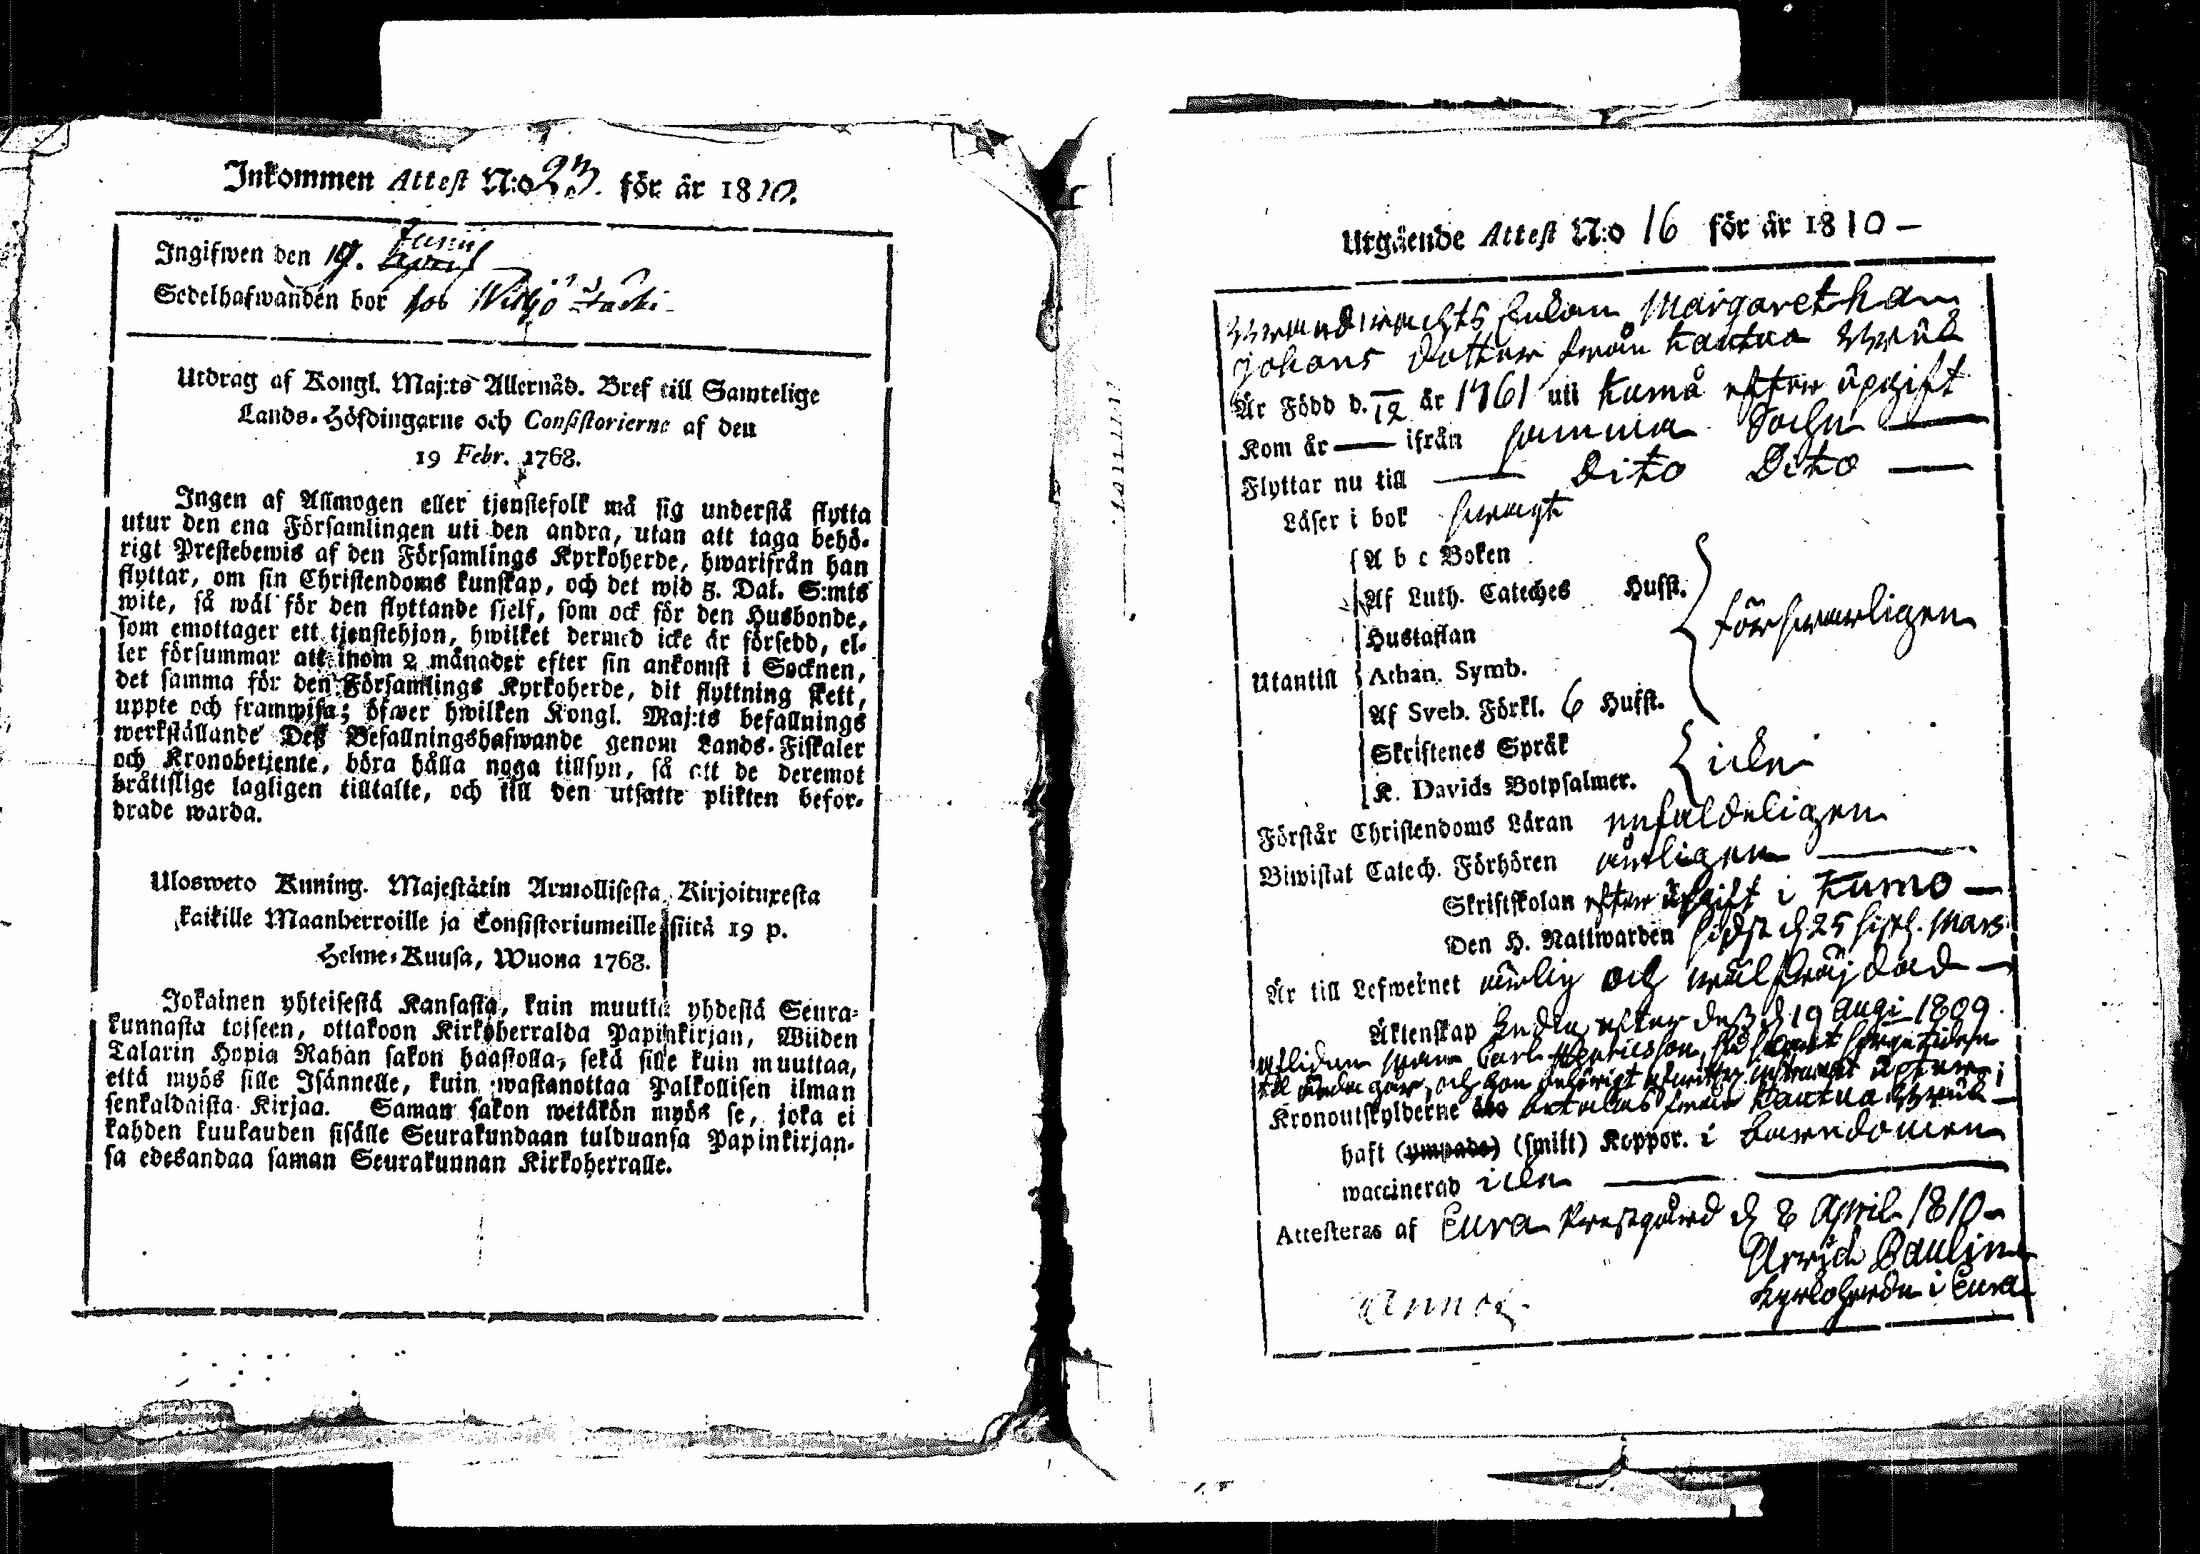 Inkommen Attest N:o 23. för år 1810.
Ingifwen den 19. Junii
Sedelhafwanden bor hos
Utdrag af Kongl. Maj:ts Allernåd. Bref till Samtelige
Lands-Höfdingarne och Consistorierne af den
19 Febr. 1768.
Ingen af Allmogen eller tjenstefolk må sig understå flytta
utur den ena Församlingen uti den andra, utan att taga behö-
rigt Prestebewis af den Församlings Kyrkoherde, hwarifrån han
flyttar, om sin Christendoms kunskap, och det wid 5. Dal. S:mts
wite, så wäl för den flyttande sjelf, som ock för den Husbonde,
som emottager ett tjenstehjon, hwilket dermed icke är försedd, el-
ler försummar att inom 2 månader efter sin ankomst i Socknen,
det samma för den Församlings Kyrkoherde, dit flyttning skett,
uppte och framwisa; öfwer hwilken Kongl. Maj:ts befallnings
werkställande Deß Befallningshafwande genom Lands-Fiskaler
och Kronobetjente, böra hålla noga tillsyn, så att de deremot
bråttslige lagligen tilltalte, och till den utsatte plikten befor-
drade warda.
Ulosweto Kuning. Majestätin Armollisesta Kirjoituxesta
kaikille Maanherroille ja Consistoriumeille siitä 19 p.
Helme-Kuusa, Wuona 1768.
Jokainen yhteisestä Kansasta, kuin muutta yhdestä Seura-
kunnasta toiseen, ottakoon Kirkoherralda Papinkirjan, Wiiden
Talarin Hopia Rahan sakon haastolla, sekä sille kuin muuttaa,
että myös sille Isännelle, kuin wastanottaa Palkollisen ilman
senkaldaista Kirjaa. Saman sakon wetäkön myös se, joka ei
kahden kuukauden sisälle Seurakundaan tulduansa Papinkirjan-
sa edesandaa saman Seurakunnan Kirkoherralle.
Utgående Attest N:o 16 för år 1810 —
Enkan Margaretha
Johans dotter från Kautua Bruk
Är Född d. —/12 år 1761 uti Kumå efter upgift
Kom år — ifrån samma Sochn —
Flyttar nu till — Dito Dito —
Läser i bok swagt
A b c Boken
Af Luth. Cateches Hufst.
Hustaflan
Utantill Athan. Symb.
förswarligen
Af Sveb. Förkl. 6 Hufst.
Skriftenes Språk
K. Davids Botpsalmer.
icke
Förstår Christendoms Läran enfaldeligen
Biwistat Catech. Förhören årligen —
Skriftskolan efter upgift i Kumo —
Den H. Nattwarden sidst d 25 sistl. Mars
Är till Lefwernet ärlig och wälfräjdad —
Äktenskap Enka efter deß d 19 Augi 1809
aflidne man Carl Henricsson,
till ända går, och hon behörigt
Kronoutskylderne betalas från Kautua Bruk —
haft (ympade) (smitt) Koppor. i barndomen
waccinerad icke —
Attesteras af Eura Prestgård d 8 April 1810 —
Arvid Paulin
Kyrkoherde i Eura